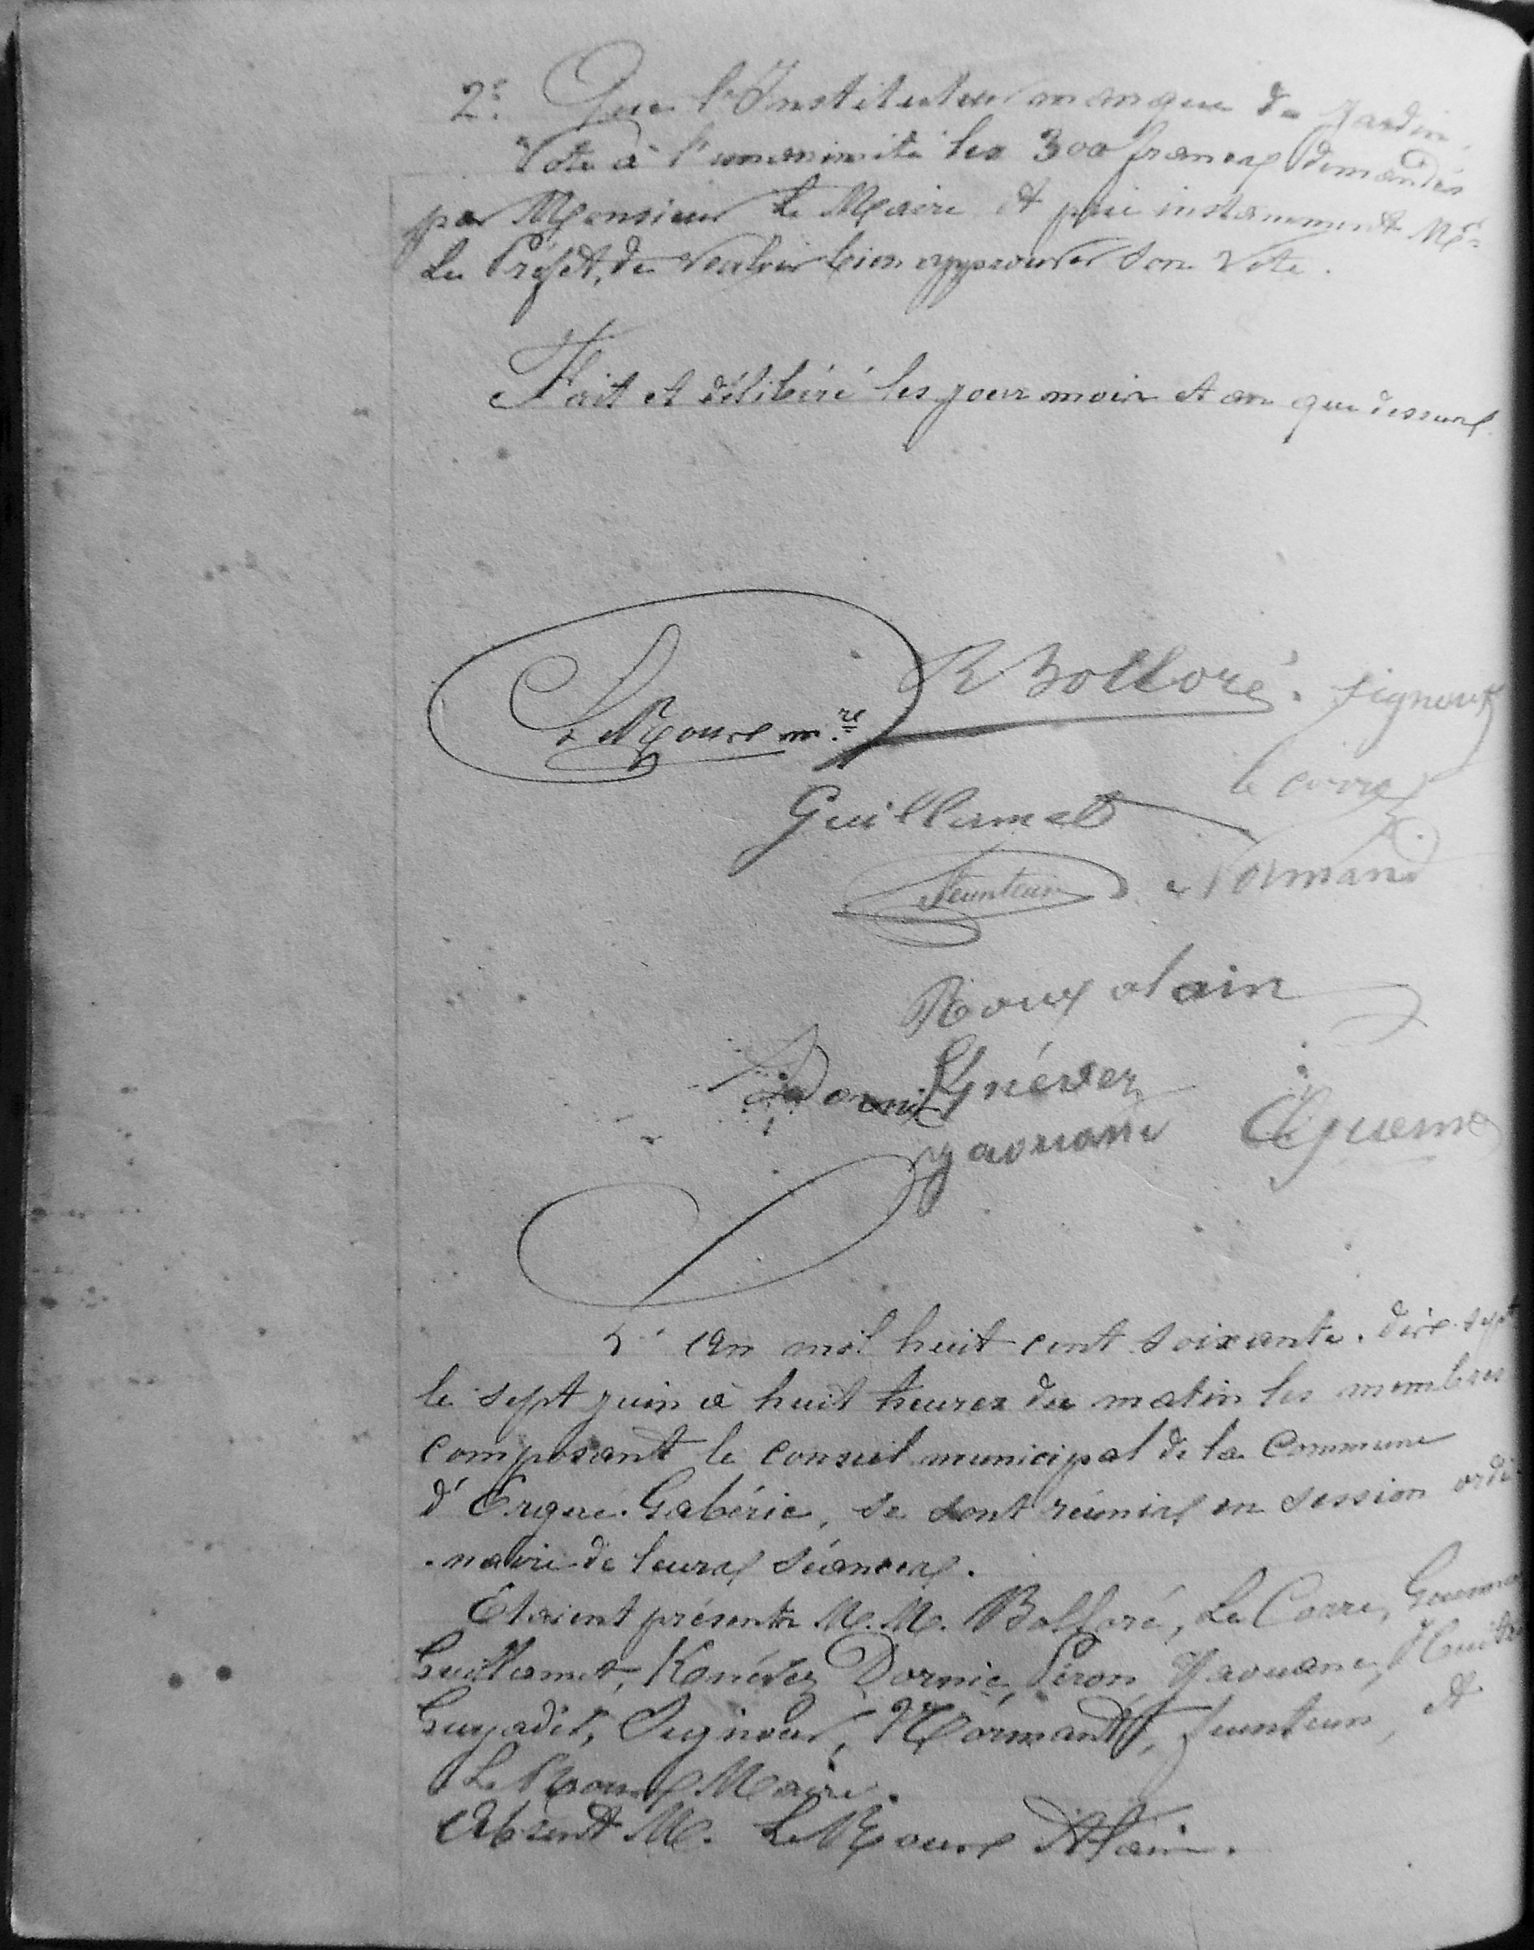 2° Que l'Instituteur manque de Jardin,
Vote à l'unanimité les 300 francs demandés
par Monsieur le Maire et prie instamment Mr
Le Préfet, de vouloir bien approuver son vote.
Fait et délibéré les jour mois et an que dessus.
Le Roux m.re R Bolloré. Signour
le corre
Guillamet
Feunteun Normand
Roux alain
Dornic Knévez
yaouanc Guemé
L'an mil huit cent soixante-dix-sept
le sept juin à huit heures du matin les membres
composant le conseil municipal de la Commune
d'Ergué-Gabéric, se sont réunis en session ordi
-naire de leurs séances.
Etaient présents M.M. Bolloré, Le Corre,
Guillamet, Knévez Dornic, Péron Yaouanc,
Guyader, Signour, Normant, feunteun, et
Le Roux Maire.
Absent M. Le Roux Alain.